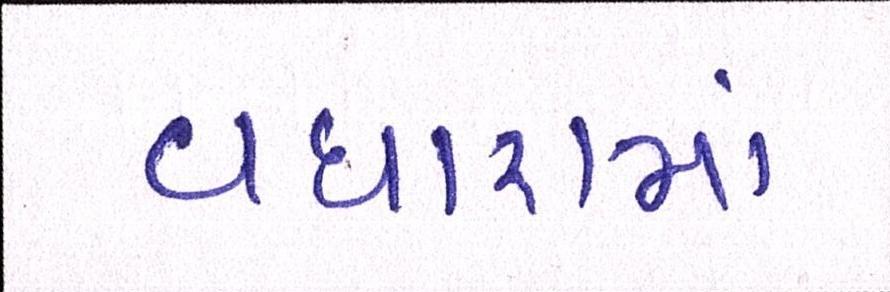 વધારામાં